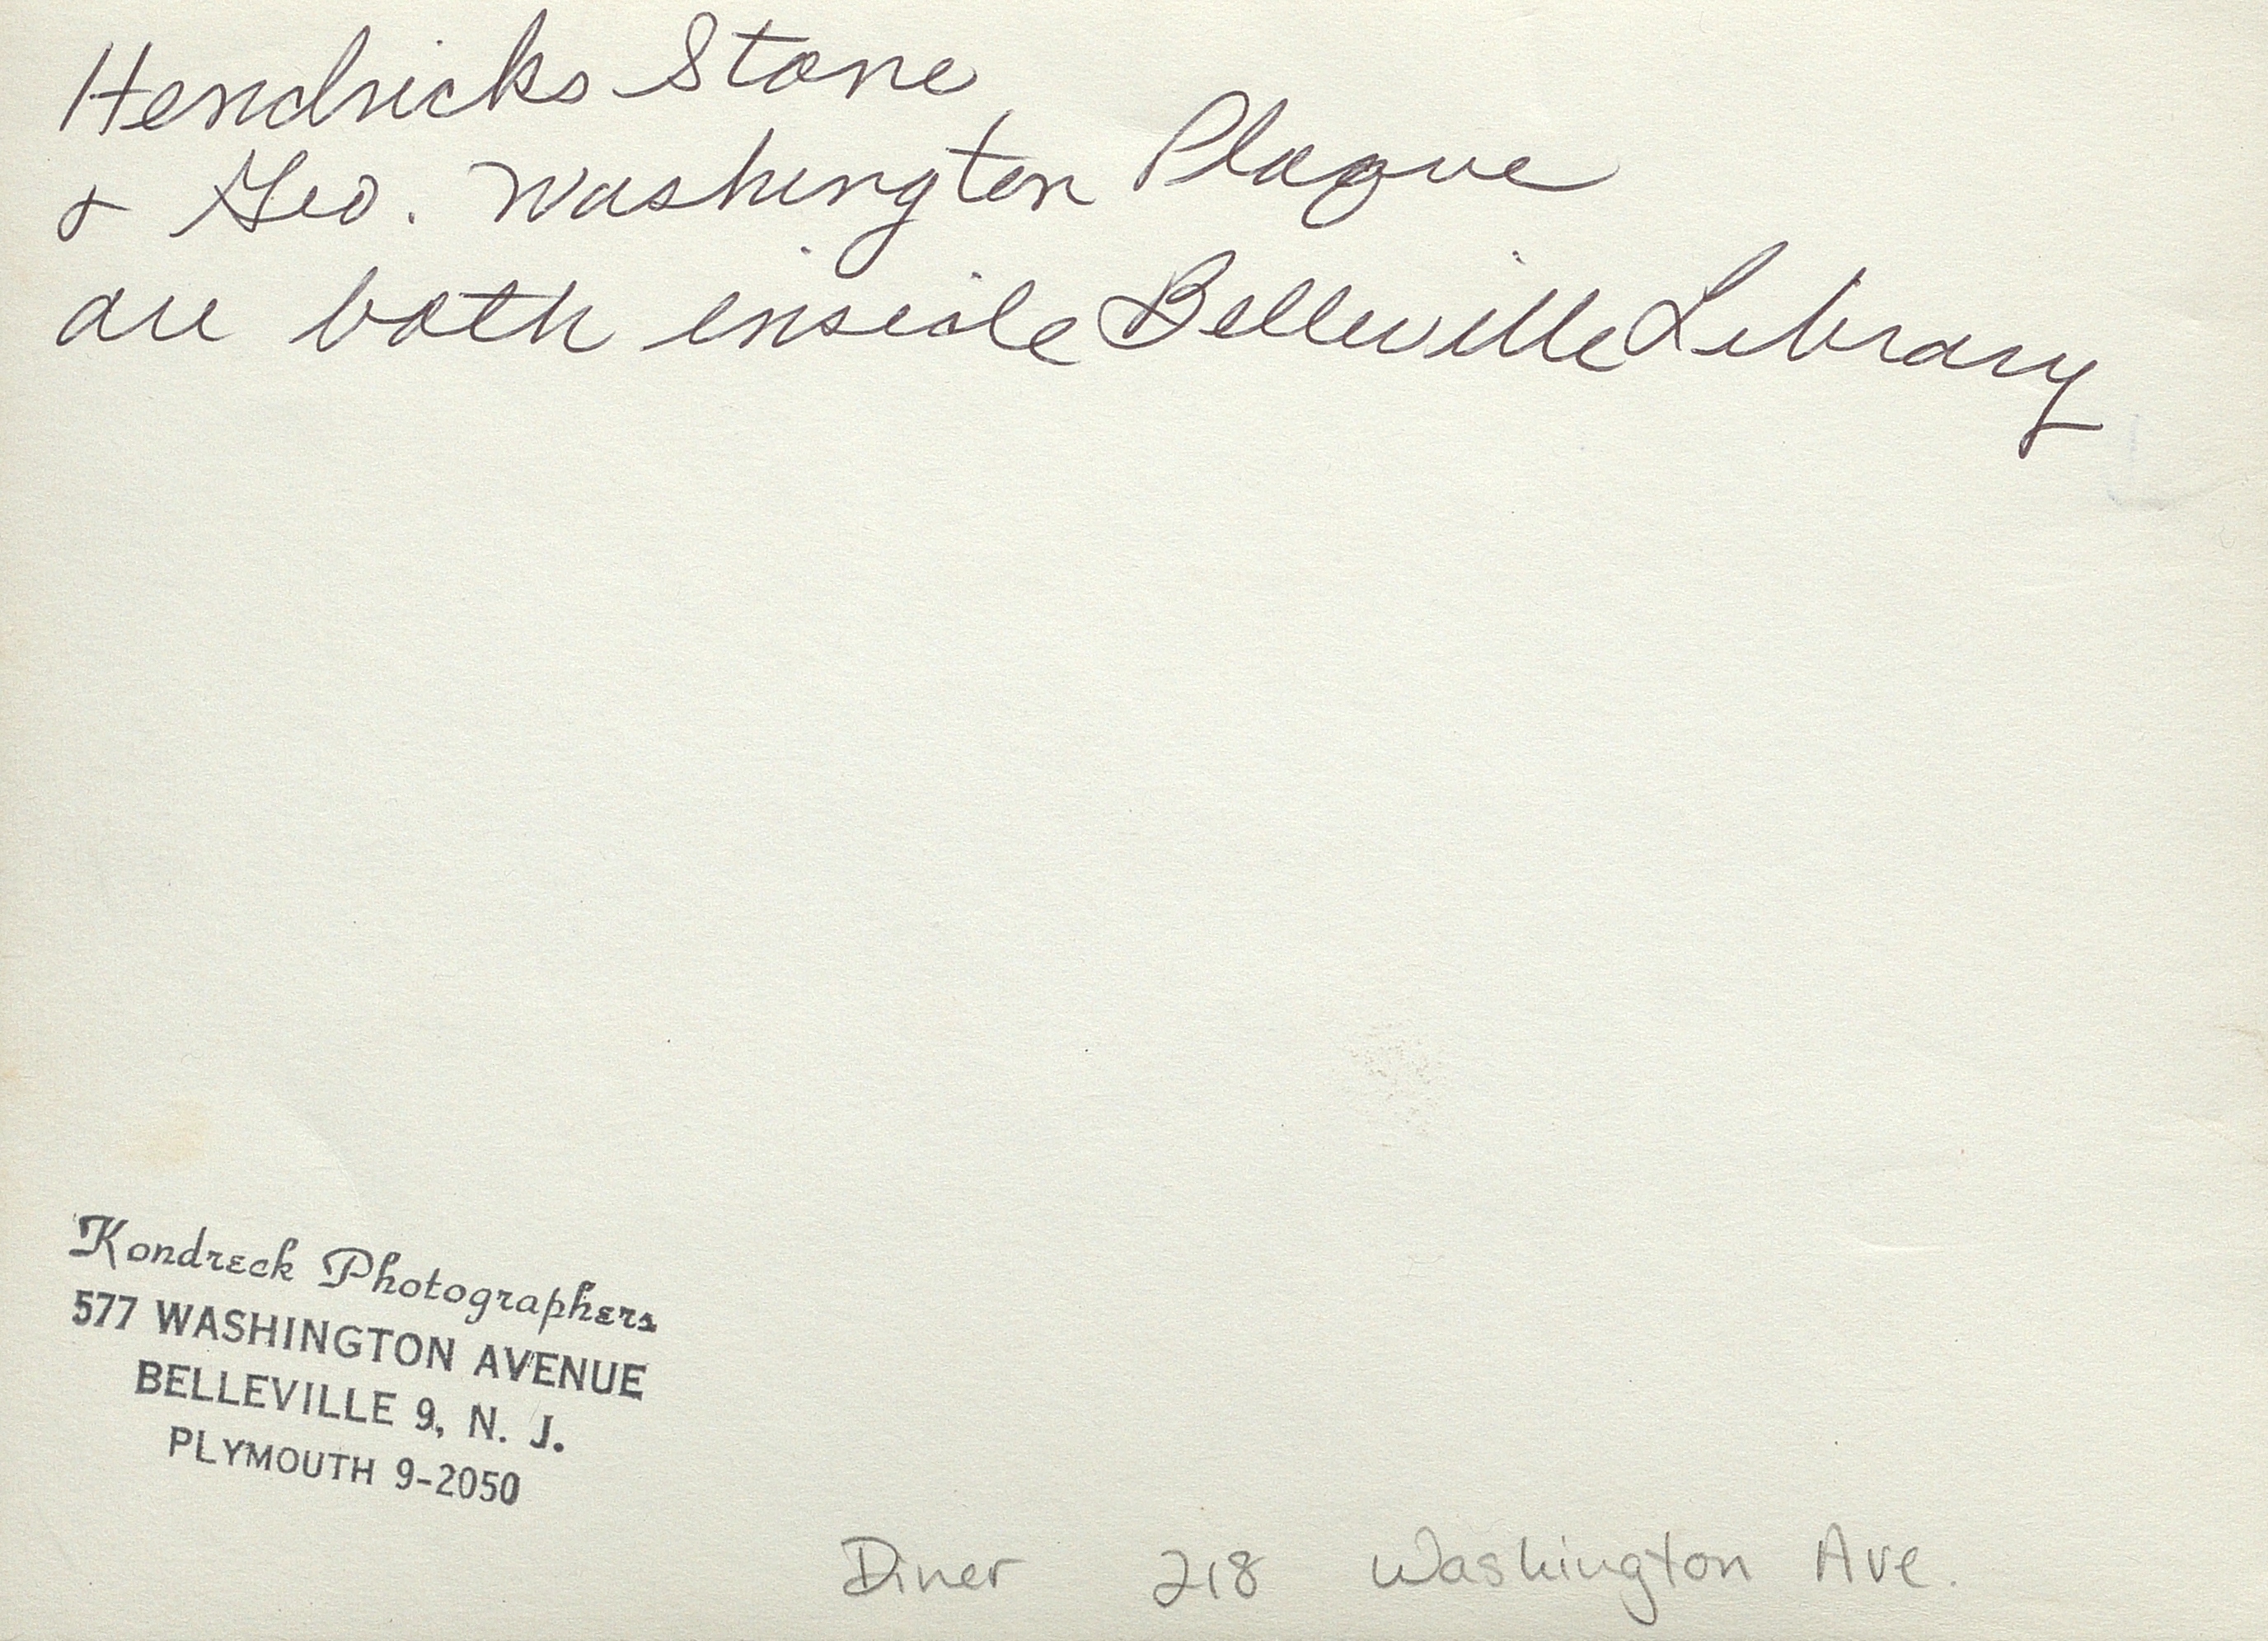 Hendricks Stone
& Geo. Washington Plaque
are both inside Belleville Library
Kondreck Photographers
577 WASHINGTON AVENUE
BELLEVILLE 9, N. J.
PLYMOUTH 9-2050
Diner 218 Washington Ave.